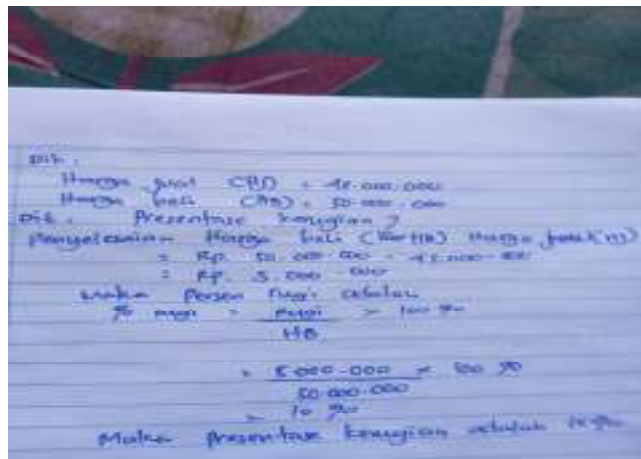 Dik :
Harga jual (HJ) = 45.000.000
Harga beli (HB) = 50.000.000
Dit : Presentase kerugian ?
Penyelesaian Harga beli (HB) Harga
= Rp. 50.000.000 - 45.000.000
= Rp. 5.000.000
Maka Persen rugi adalah
% rugi = rugi × 100 %
HB
= 5.000.000 × 100 %
50.000.000
= 10 %
Maka presentase kerugian adalah 10%